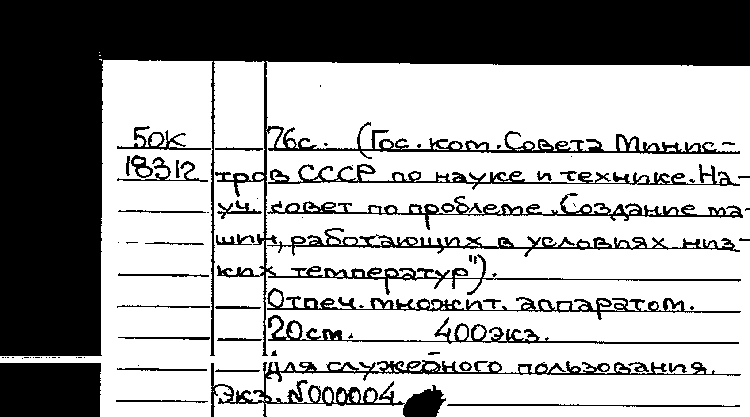 50К 76с. (Гос. ком. Совета Минис-
18312 тров СССР по науке и технике. На-
уч. совет по проблеме „Создание ма-
шин, работающих в условиях низ-
ких температур").
Отпеч. множит. аппаратом.
20см. 400экз.
Для служебного пользования.
Экз. №000004